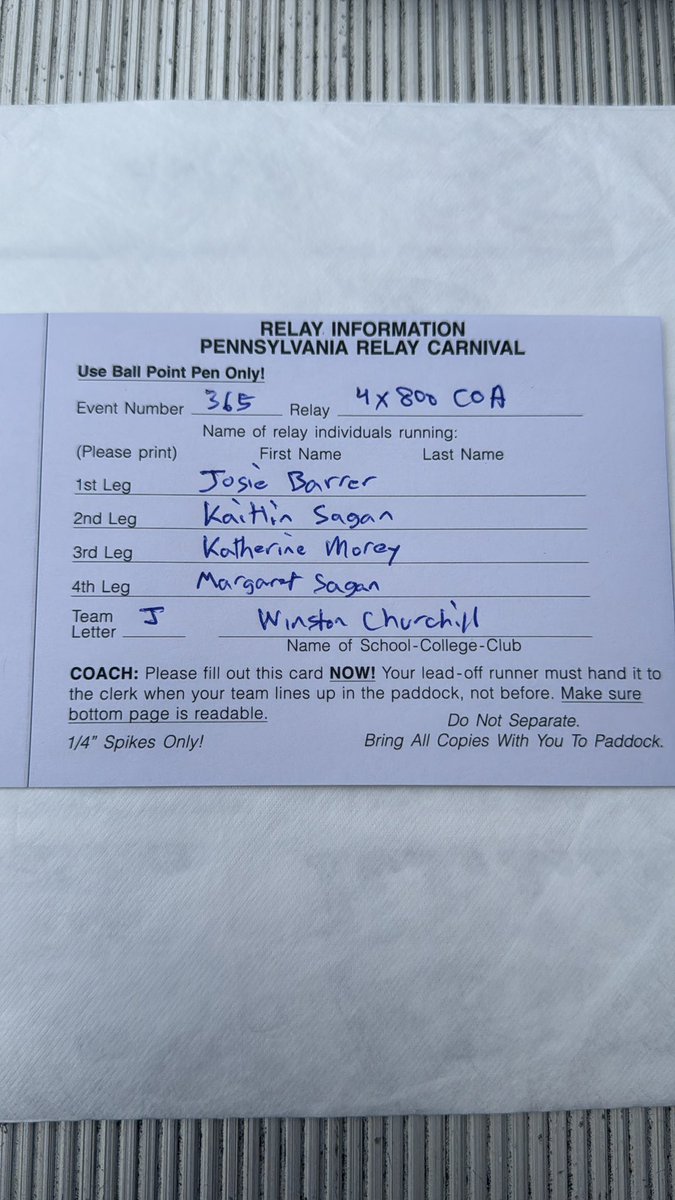 RELAY INFORMATION
PENNSYLVANIA RELAY CARNIVAL
Use Ball Point Pen Only!
Event Number 365 Relay 4x800 COA
Name of relay individuals running:
(Please print) First Name Last Name
1st Leg Josie Barrer
2nd Leg Kaitlin Sagan
3rd Leg Katherine Morey
4th Leg Margaret Sagan
Team Letter J Winston Churchill
Name of School-College-Club
COACH: Please fill out this card NOW! Your lead-off runner must hand it to
the clerk when your team lines up in the paddock, not before. Make sure
bottom page is readable.
Do Not Separate.
1/4" Spikes Only! Bring All Copies With You To Paddock.